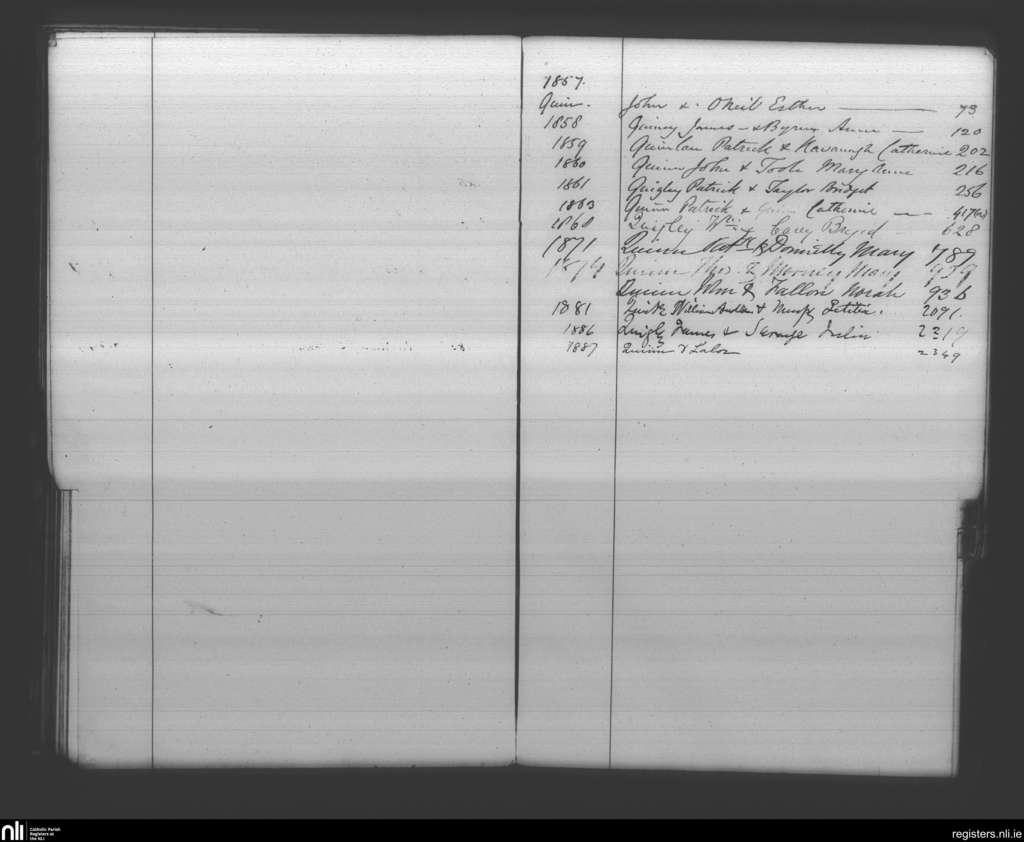 1857.
Quin. John & O'Neil Esther 73
1858 Quinny James - & Byrne Anne 120
1859 Quinlan Patrick & Kavanagh Catherine 202
1860 Quinn John & Toole Mary Anne 216
1861 Quigley Patrick & Taylor Bridget 256
1863 Quinn Patrick & Catherine
1868 Quigley Wm & Carey Brigid 628
1871 Quinn & Donnelly Mary 789
1874 Quinn Thos & Mary 939
Quinn Wm & Fallon Norah 936
1881 William & Murphy Letitia. 2091.
1886 James & Savage 2319
1887 Quinn & Lalor 2349
nli Catholic Parish
Registers at
the NLI
registers.nli.ie